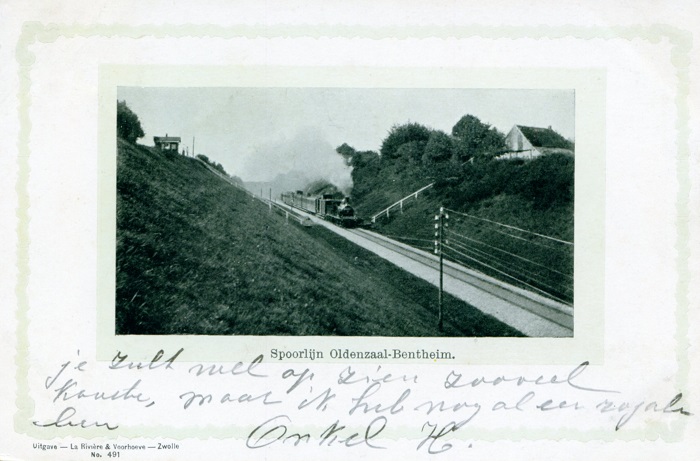 Spoorlijn Oldenzaal-Bentheim.
je zult wel op zien zooveel
maar ik heb nog al een
Onkel H.
Uitgave — La Rivière & Voorhoeve — Zwolle
No. 491